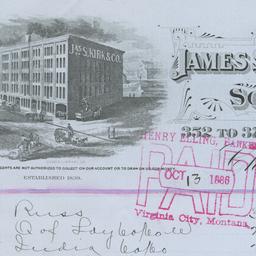 JAS. S. KIRK & CO.
JAMES
SO
352 TO 3
AGENTS ARE NOT AUTHORIZED TO COLLECT ON OUR ACCOUNT OR TO DRAW ON US FOR MONEY
ESTABLISHED 1839.
HENRY ELLING, BANKE
PAID
OCT 13 1886
Virginia City, Montana.
Russ